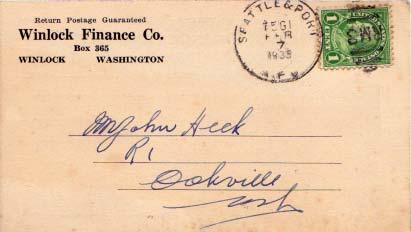 Return Postage Guaranteed
Winlock Finance Co.
Box 365
WINLOCK WASHINGTON
SEATTLE & PORT
FEB
7
1933
R.P.O.
1 CENT 1
Mr John Heck
R1
Oakville
Wash